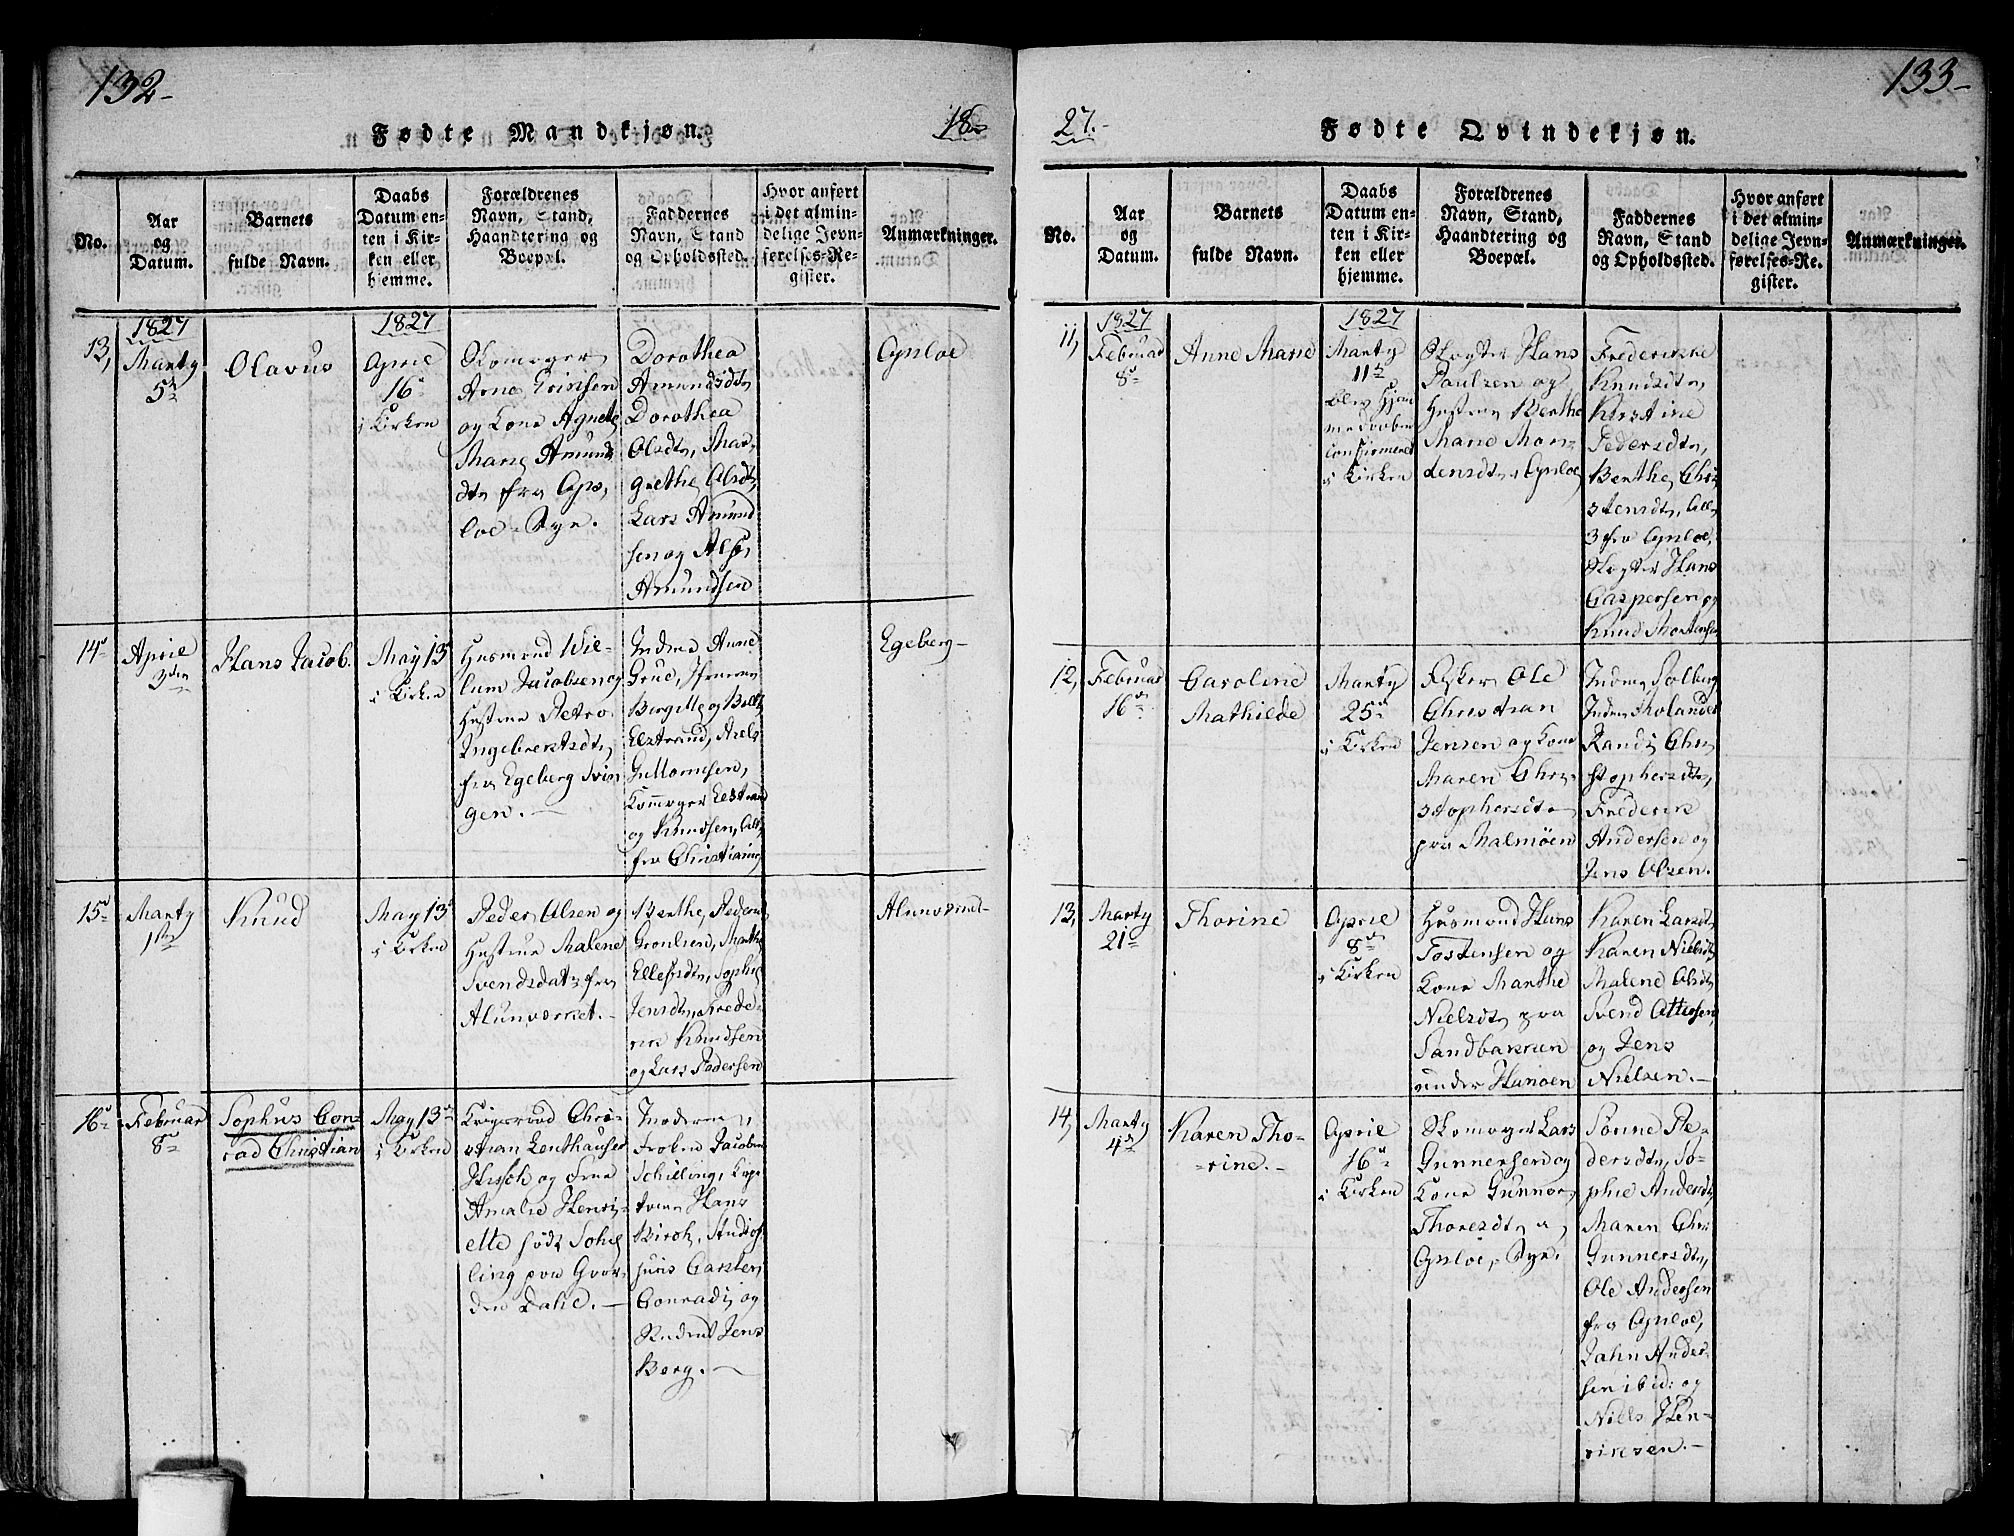 132-
Fødte Mandkjøn.
18-
No.
Aar
og
Datum.
Barnets
fulde Navn.
Daabs
Datum en-
ten i Kir-
ken eller
hjemme.
Forældrenes
Navn, Stand,
Haandtering og
Boepæl.
Faddernes
Navn, Stand
og Opholdssted.
Hvor anført
i det almin-
delige Jevn-
førelses-Re-
gister.
Anmærkninger.
13,
1827
Marty
5te
Olavus
1827
April
16
i Kirken
Skomager
Arne
og Kone Agnete
Marie Amunds
dtr fra Op
loe Byn.
Dorothea
Amundsdtr
Dorothea
Olsdtr, Mar-
grethe Olsdtr,
Lars Amund
sen og
Amundsen
Opsloe
14
April
3den
Hans Jacob.
May 13
i Kirken
Husmand Wil-
lum Jacobsen og
Hustrue Petro
Ingebretsdtr
fra Egeberg Svin
gen.-
Anne
Grud, Jfruerne
Bergitte og
Elstrand, Axel
Guttormsen,
Elstrand
og Knudsen, alle
fra Christiania
Egeberg-
15
Marty
1ste
Knud
May 13
i Kirken
Peder Olsen og
Hustrue Malene
Svendsdatr fra
Alunværket.-
Berthe Peders
Marthe
Ellefsdtr, Sophie
Jensdtr, Frede-
rik Knudsen
og Lars Pedersen
Alunværket-
16
Februar
8
Sophus Con-
rad Christian
May 13
i Kirken
Krigsraad Chri-
stian Lenthauser
Hirsch og Frue
Amalie Henri-
ette født Schil
ling paa
Dahl.-
Moderen,
Frøken Jacobine
Schilling, Cap
tain Hans
Birch,
juris Carsten
Conradi og
Student Jens
Berg.-
27.-
Fødte Qvindekjøn.
133-
No.
Aar
og
Datum.
Barnets
fulde Navn.
Daabs
Datum en-
ten i Kir-
ken eller
hjemme.
Forældrenes
Navn, Stand,
Haandtering og
Boepæl.
Faddernes
Navn, Stand
og Opholdssted.
Hvor anført
i det almin-
delige Jevn-
førelses-Re-
gister.
Anmærkninger.
11,
1827
Februar
8
Anne Marie
1827
Marty
11te
blev Hjem
medøbt
confirmeret
i Kirken
Slagter Hans
Paulsen og
Hustrue Berthe
Marie Mor-
tensdtr, Opsloe
Frederikke
Knudsdtr,
Kirstine
Pedersdtr,
Berthe Chri
stensdtr, alle
3 fra Opsloe,
Slagter Hans
Caspersen og
Knud Mortensen
12,
Februar
16
Caroline
Mathilde
Marty
25
i Kirken
Fisker Ole
Christian
Jensen og Kone
Maren Chri-
stophersdtr
paa Malmøen
Solberg
Molander
Randi Chri
stophersdtr,
Frederik
Andersen og
Jens Olsen.
13,
Marty
21
Thorine
April
8
i Kirken
Husmand Hans
Tostensen og
Kone Marthe
Nielsdtr paa
Sandbakken
under
Karen Larsdtr
Karen Nielsdtr
Malene Olsdtr
Svend Ottersen
og Jens
Nielsen.-
14,
Marty
4
Karen Tho-
-rine.-
April
16
i Kirken
Skomager Lars
Gunnersen og
Kone Gunnor
Thoresdtr
Opsloe, Byn.
Sønne Pe-
dersdtr, So-
phie Andersdtr
Maren Chri
Gunnersdtr,
Ole Andersen
fra Opsloe,
Jahn Ander-
sen ibid: og
Niels Hen-
riksen.-